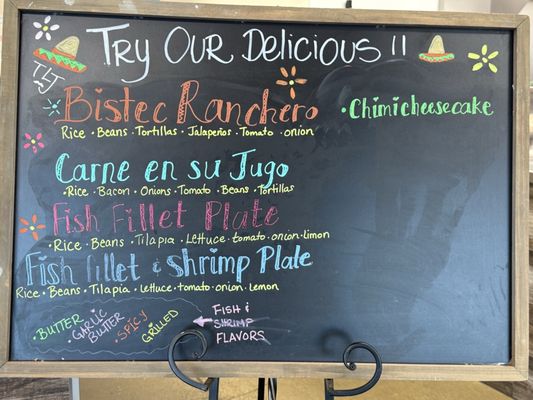 Try Our Delicious!!
TJ
Bistec Ranchero
Rice • Beans • Tortillas • Jalapeños • Tomato • onion
• Chimicheesecake
Carne en su Jugo
• Rice • Bacon • Onions • Tomato • Beans • Tortillas
Fish Fillet Plate
• Rice • Beans • Tilapia • Lettuce • tomato • onion • limon
Fish fillet & shrimp Plate
Rice • Beans • Tilapia • Lettuce • tomato • onion • Lemon
• Butter
• Garlic Butter
• Spicy
Grilled
Fish &
Shrimp
Flavors